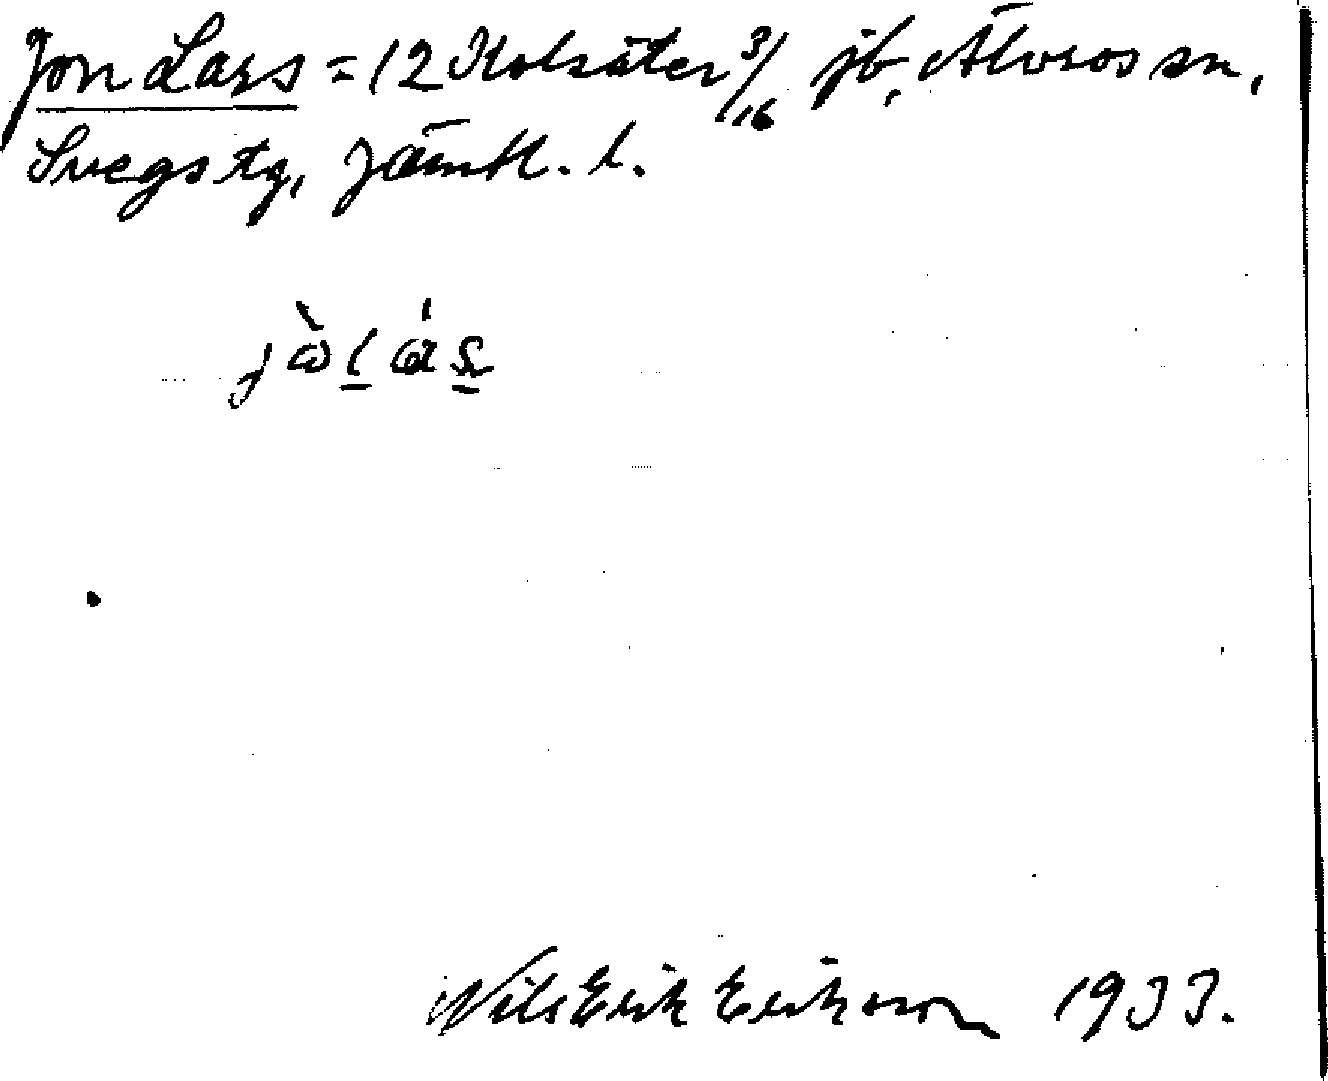 Jon Lars = 12 Kolsäter 3/16 jb, Älvros sn,
Svegs tg, Jämtl. l.
jὼl̲άs̲
Nils Erik Erikson 1933.